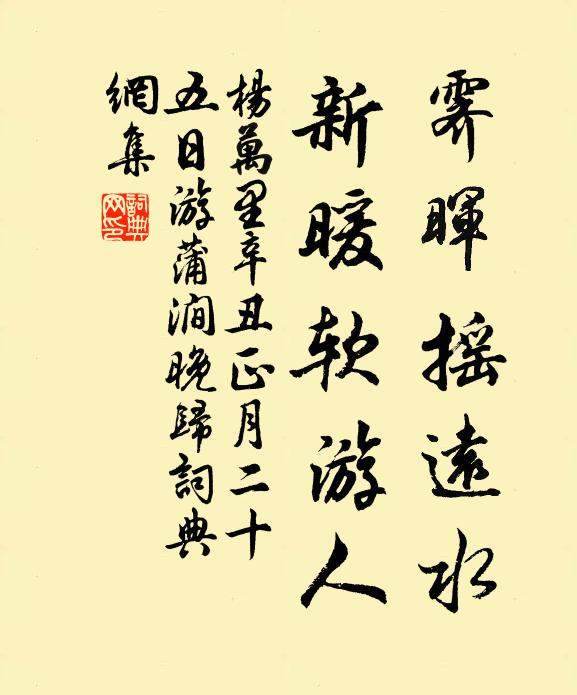 霽暉搖遠水
新暖軟游人
楊萬里辛丑正月二十
五日游蒲澗晚歸詞典
網集
詞典
网印